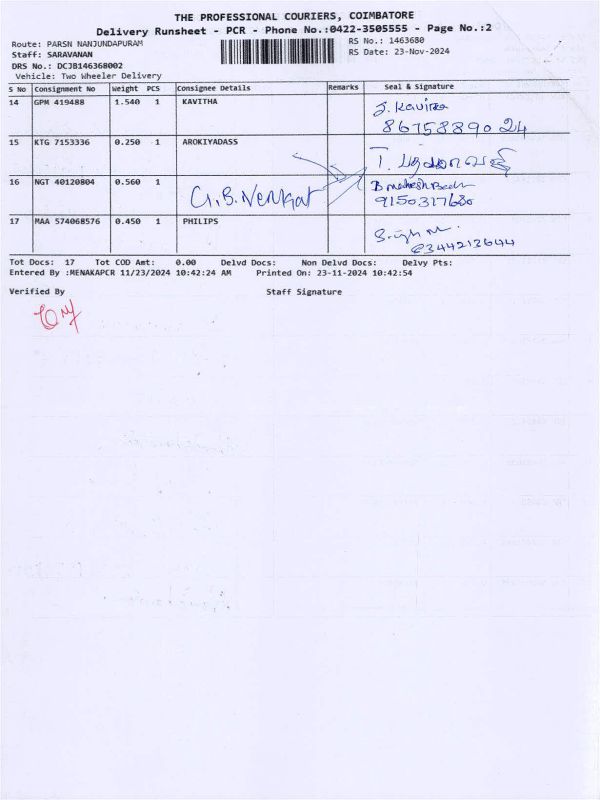 THE PROFESSIONAL COURIERS, COIMBATORE
Delivery Runsheet - PCR - Phone No.:0422-3505555 - Page No.:2
Route: PARSN NANJUNDAPURAM RS No.: 1463680
Staff: SARAVANAN RS Date: 23-Nov-2024
DRS No.: DCJB146368002
Vehicle: Two Wheeler Delivery
S No Consignment No Weight PCS Consignee Details Remarks Seal & Signature
14 GPM 419488 1.540 1 KAVITHA J. Kavitha
8675889024
15 KTG 7153336 0.250 1 AROKIYADASS
T.
16 NGT 40120804 0.560 1 G.B. Venkat B mahesh Babu
9150317680
17 MAA 574068576 0.450 1 PHILIPS
6344213644
Tot Docs: 17 Tot COD Amt: 0.00 Delvd Docs: Non Delvd Docs: Delvy Pts:
Entered By :MENAKAPCR 11/23/2024 10:42:24 AM Printed On: 23-11-2024 10:42:54
Verified By Staff Signature